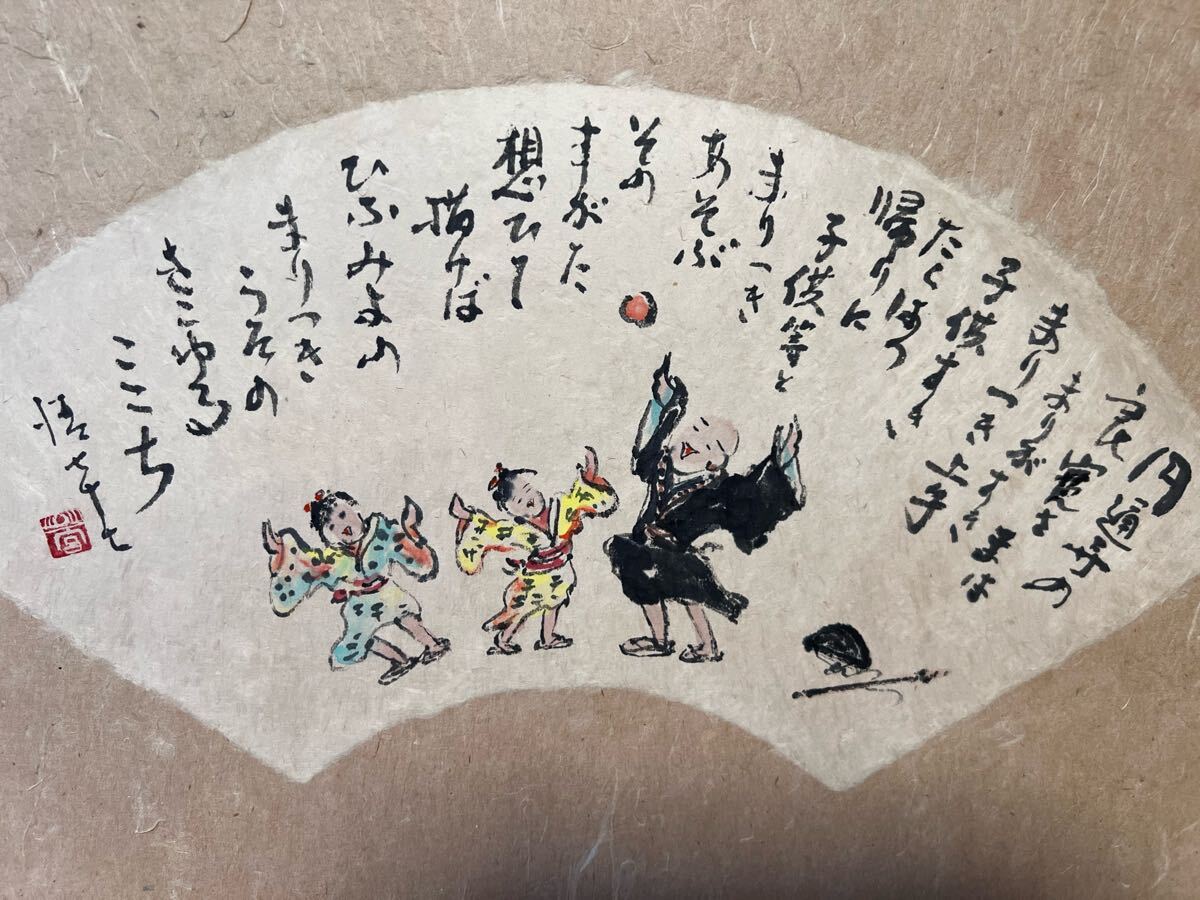 円通寺の
良寛さ
まりがすき まは
まりつき上手
子供すき
たくはつ
帰りに
子供等と
まりつき
あそぶ
その
すがた
想ひて
描けば
ひふみよの
まりつき
うたの
きこゆる
ここち